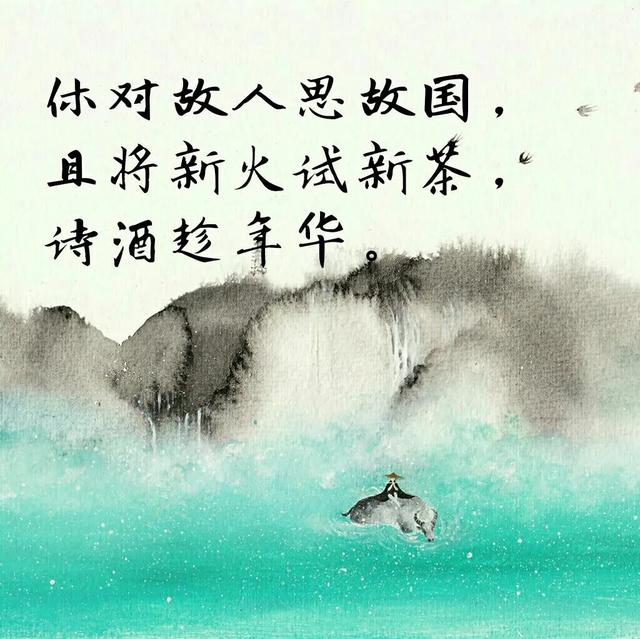 休对故人思故国，
且将新火试新茶，
诗酒趁年华。